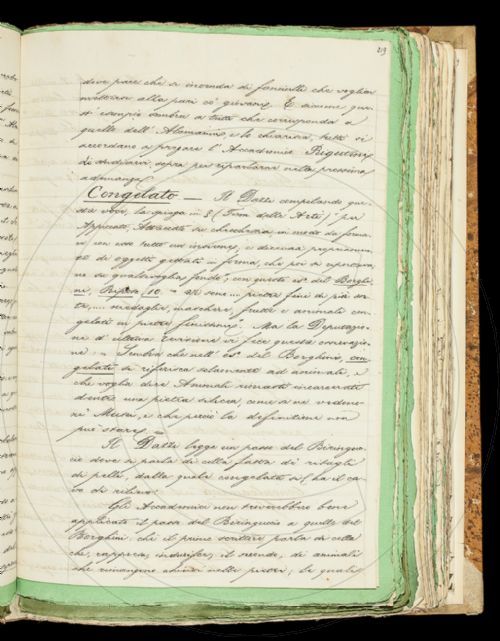 219
deve pare che s'intenda di fanciulli che vogliam
mettersi alla pari co' giovani. E siccome que-
st' esempio sembra a tutti che corrisponda a
quello dell' Alamanni, e lo chiarisca, tutti si
accordano a pregare l' Accademico Rigutini
di studiarci sopra per riportarne nella prossima
adunanza.
Congelato — Il Dazzi compilando que-
sta voce, la spiega in § (Term. delle Arti) per
Appiccato, Attaccato
con esso tutto un
di oggetti gettati in forma, che poi si
con questo es. del Borghi-
ni, Riposo, 10. = Vi sono... pietre fini di più sor-
te,.... medaglie, maschere, frutte e animali con-
gelati in pietra finissimi. = Ma la Deputazio-
ne d' ultima revisione vi fece questa osservazio-
ne: = Sembra che nell' es. del Borghini, con-
gelato si riferisca solamente ad animali, e
che voglia dire Animali rimasti incarcerati
dentro una pietra silicea, come se ne vedono
ne' Musei, e che perciò la definizione non
può stare. =
Il Dazzi legge un passo del Biringuc-
cio dove si parla di colla fatta di ritagli
di pelli, dalla quale congelata si ha il ca-
vo di rilievo.
Gli Accademici non troverebbero bene
applicato il passo del Biringuccio a quello del
Borghini; chè il primo scrittore parla di colla
che, rappresa, indurisce; il secondo, di animali
che rimangono chiusi nelle pietre; le quali